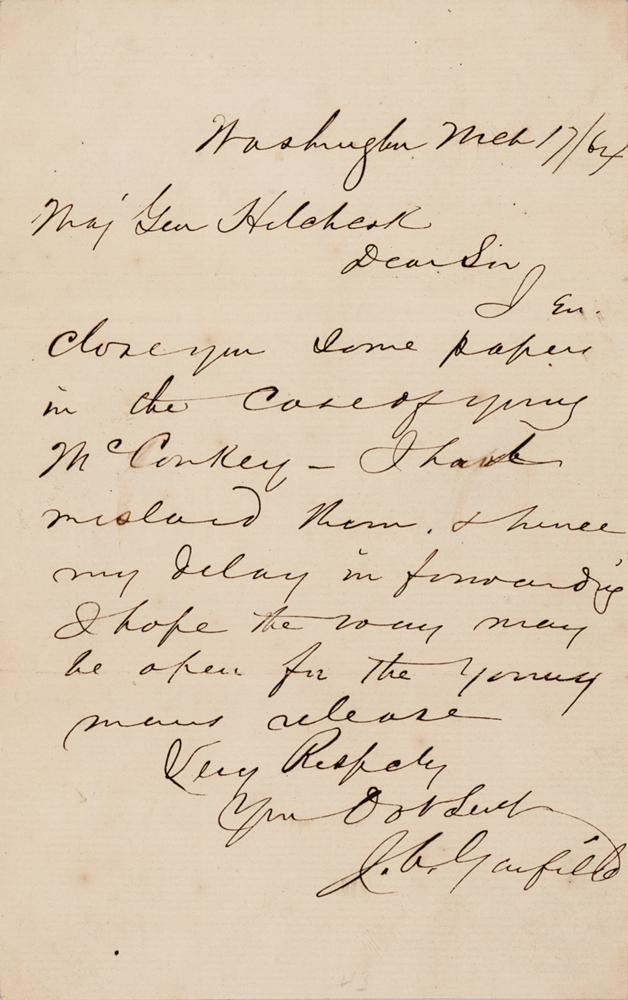 Washington Mch 17/64
Maj Gen Hitchcock
Dear Sir
I En-
close you some papers
in the case of young
McConkey - I had
mislaid them, & hence
my delay in forwarding
I hope the way may
be open for the young
mans release
Very Respcly
Your Obt Servt
J. A. Garfield